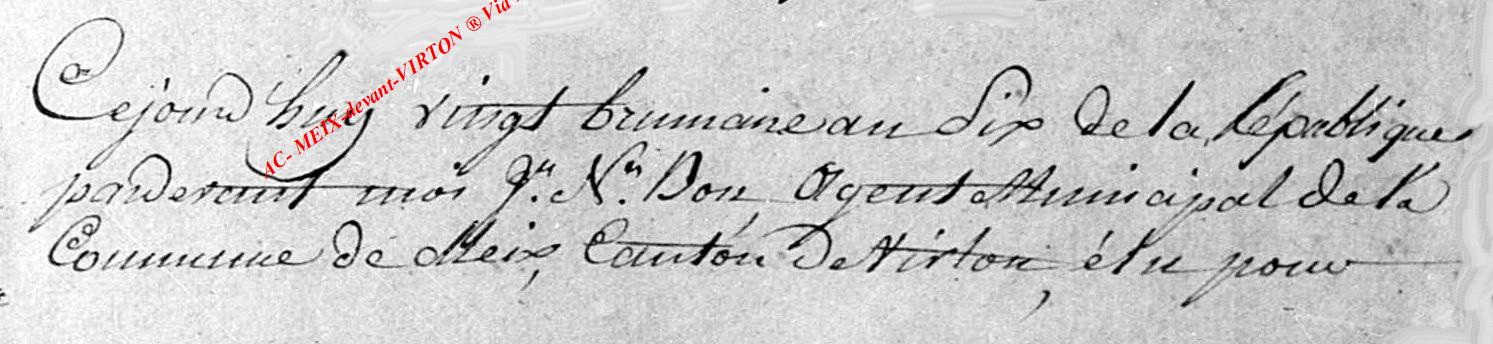 Cejourd huy vingt brumaire an Six de la République
pardevant moi Jn. Nas. Bon, Agent Municipal de la
Commune de Meix, Canton De Virton, élu pour
AC- MEIX-devant-VIRTON ® Via